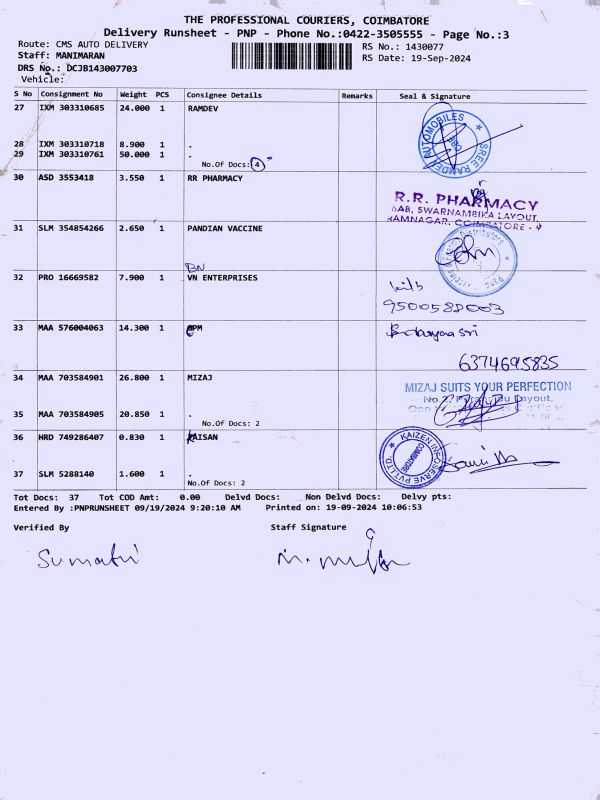 THE PROFESSIONAL COURIERS, COIMBATORE
Delivery Runsheet - PNP - Phone No.:0422-3505555 - Page No.:3
Route: CMS AUTO DELIVERY
RS No.: 1430077
Staff: MANIMARAN
RS Date: 19-Sep-2024
DRS No.: DCJB143007703
Vehicle:
S No Consignment No Weight PCS Consignee Details Remarks Seal & Signature
27 IXM 303310685 24.000 1 RAMDEV
SREE RAMDEV AUTOMOBILES
28 IXM 303310718 8.900 1 .
29 IXM 303310761 50.000 1 .
No.Of Docs: 4
30 ASD 3553418 3.550 1 RR PHARMACY
R.R. PHARMACY
SWARNAMBIKA LAYOUT,
RAMNAGAR, COIMBATORE - 9
31 SLM 354854266 2.650 1 PANDIAN VACCINE
Distributors
BN
32 PRO 16669582 7.900 1 VN ENTERPRISES
9500588003
33 MAA 576004063 14.300 1 GPM
6374695835
34 MAA 703584901 26.800 1 MIZAJ
MIZAJ SUITS YOUR PERFECTION
35 MAA 703584905 20.850 1 .
No.Of Docs: 2
36 HRD 749286407 0.830 1 KAISAN
KAIZEN INFOSERVE PVT LTD
COIMBATORE
37 SLM 5288140 1.600 1 .
No.Of Docs: 2
Tot Docs: 37 Tot COD Amt: 0.00 Delvd Docs: Non Delvd Docs: Delvy pts:
Entered By :PNPRUNSHEET 09/19/2024 9:20:10 AM Printed on: 19-09-2024 10:06:53
Verified By Staff Signature
Sumathi